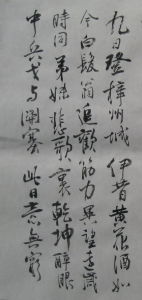 九日登梓州城 伊昔黃花酒如
今白髮翁追歡筋力異望遠歲
時同弟妹悲歌裏乾坤醉眼
中兵戈与關塞此日意無窮